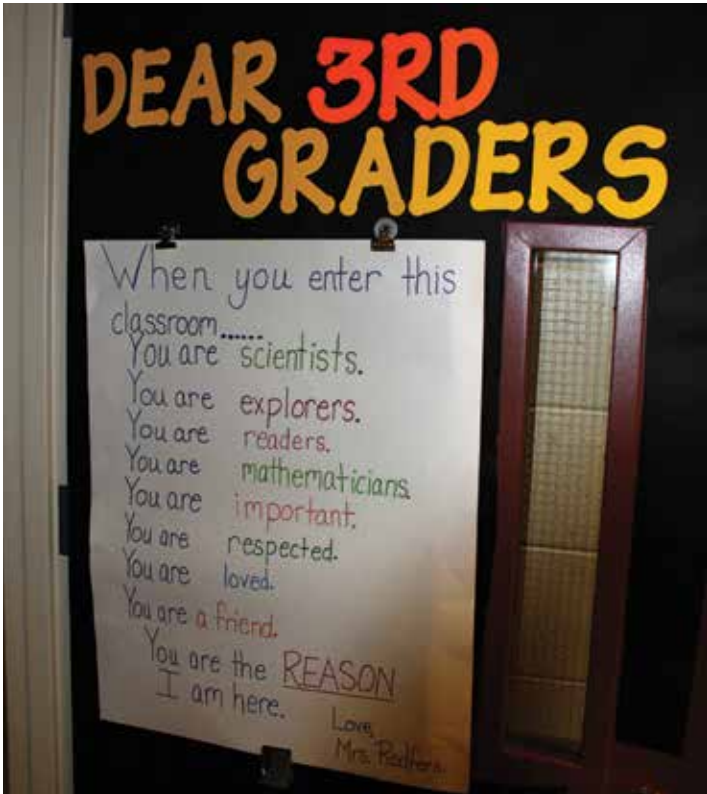 DEAR 3RD
GRADERS
When you enter this
classroom......
You are scientists.
You are explorers.
You are readers.
You are mathematicians.
You are important.
You are respected.
You are loved.
You are a friend.
You are the REASON
I am here.
Love,
Mrs.